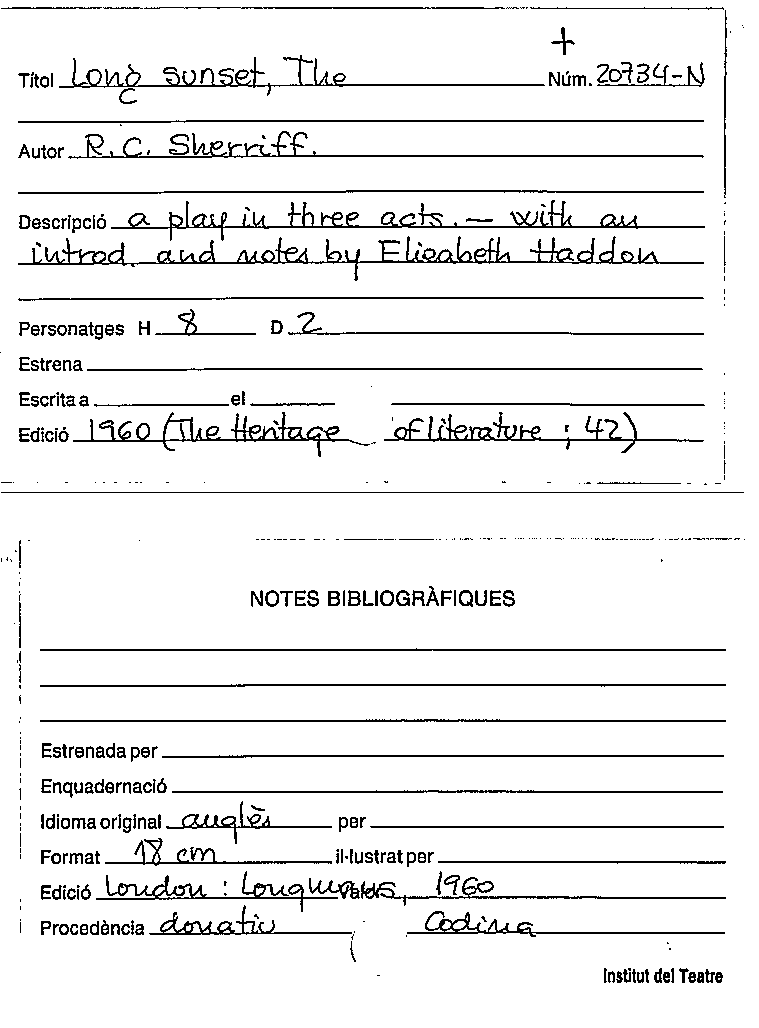 +
Títol Long sunset, The Núm. 20734-N
Autor R.C. Sherriff.
Descripció a play in three acts. — with an
introd. and notes by Elisabeth Haddon
Personatges H 8 D 2
Estrena
Escrita a el
Edició 1960 (The Heritage of literature ; 42)
NOTES BIBLIOGRÀFIQUES
Estrenada per
Enquadernació
Idioma original anglès per
Format 18 cm il·lustrat per
Edició London : Longmans, 1960
Procedència donatiu Codina
Institut del Teatre